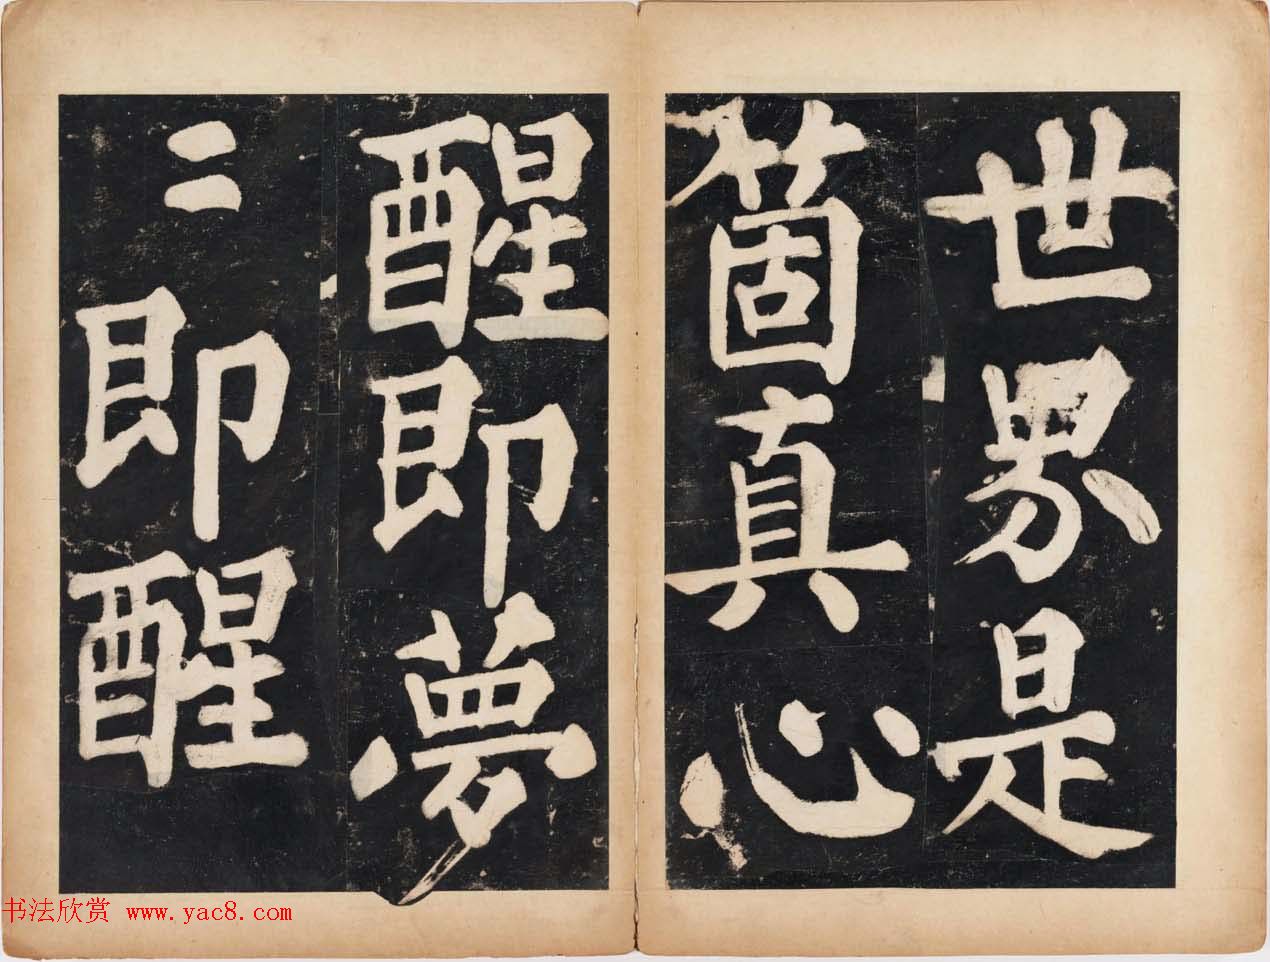 世界是
箇真心
醒即夢
〻即醒
书法欣赏 www.yac8.com